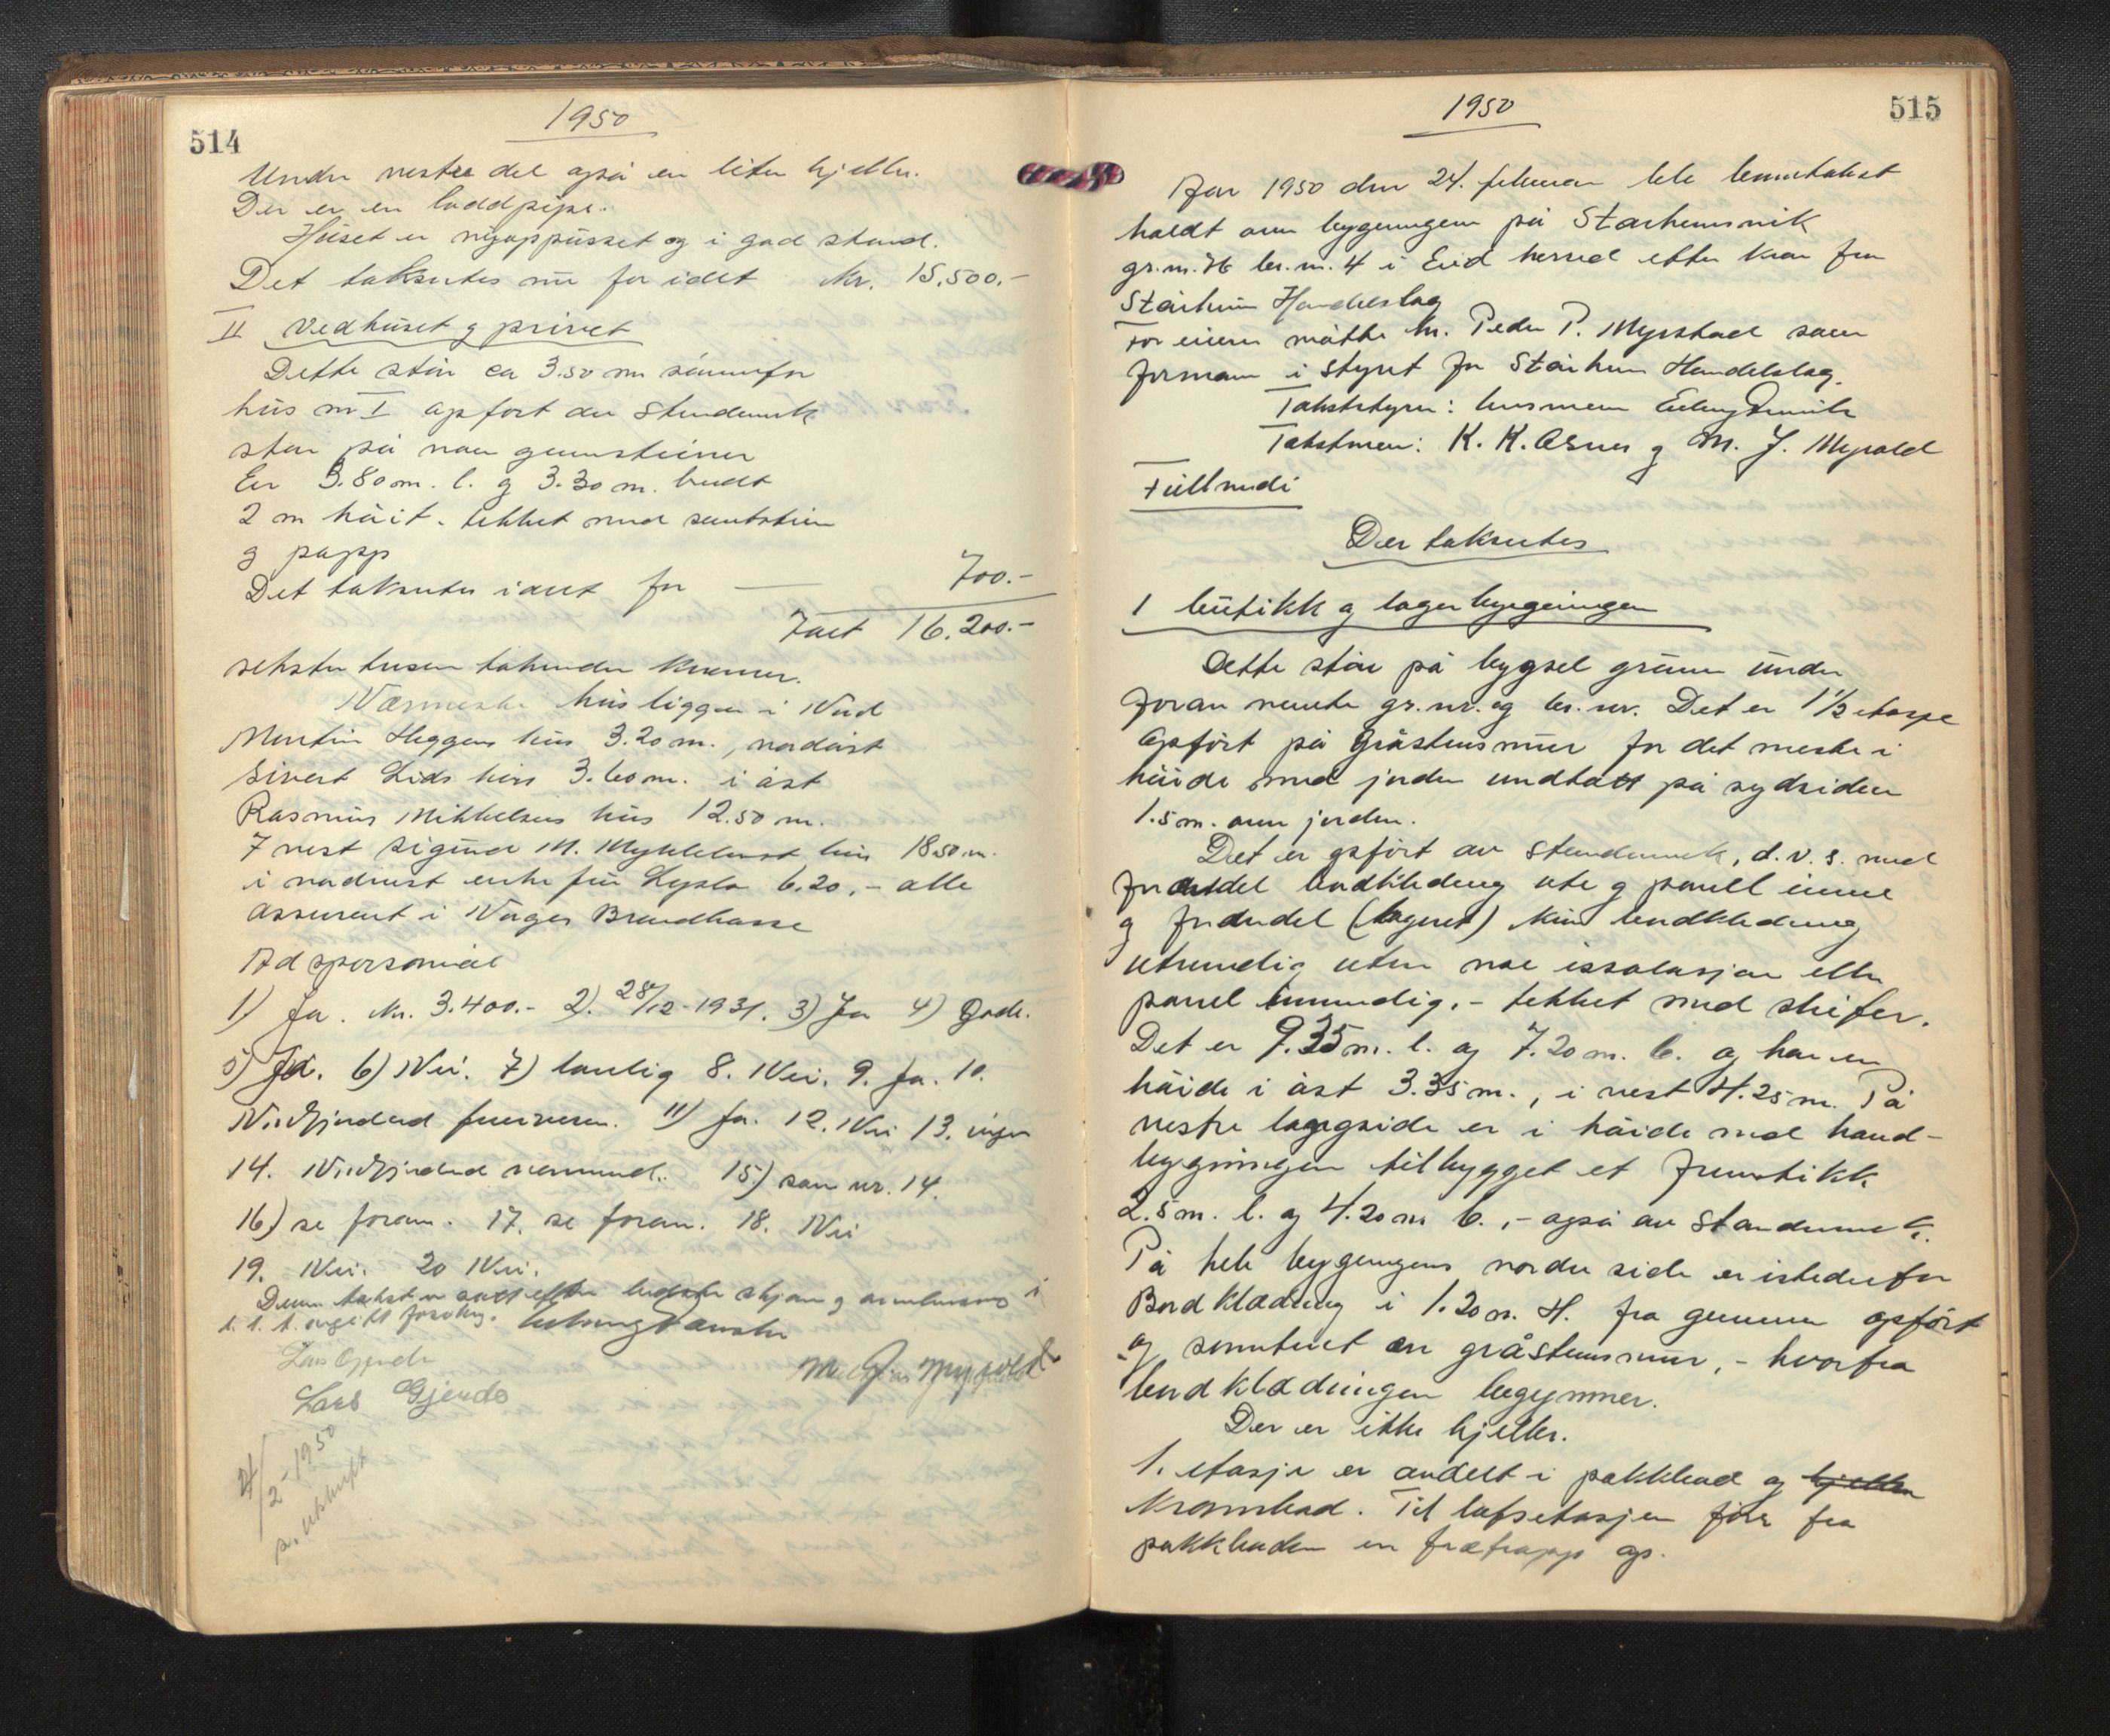 514
1950
Under vestre del også en liten kjeller.
Der er en loddpipe.
Huset er nyoppusset og i god stand.
Det takseres nu for i det kr. 15.500.-
II Vedhuset og privet
Dette står ca 3.50 m sønnenfor
hus nr I opført av Stenderverk
står på noen grunnsteiner
Er 3.80 m. l. og 3.30 m. bredt
2 m høit. tekket med
og papp
Det takseres i alt for — 700.-
I alt 16.200.-
seksten tusen tohundre kroner.
Nærmeste hus ligger i Nord
Martin Heggens hus 3.20 m., nordøst
Sivert Lids hus 3.60 m. i øst
Rasmus Mikkelsens hus 12.50 m.
I vest Sigurd M. Myklebust hus 18.50 m.
i nordvest enke 6.20,- alle
assurert i Norges Brandkasse
Ad spørsmål
1) Ja. kr. 3.400.- 2). 28/12-1931. 3) Ja 4) Gode.
5) Ja. 6) Nei. 7) lovlig 8. Nei. 9. Ja. 10.
Nordfjordeid 11) Ja. 12. Nei 13. ingen
14. Nordfjordeid 15.) som nr. 14.
16) se foran. 17. se foran. 18. Nei
19. Nei. 20 Nei.
Denne takst er satt efter beste skjøn og
Lars Gjerde
Lars Gjerde
2-1950
s. utskrift
515
1950
Aar 1950 den 24. februar ble branntakst
holdt over bygningen på Starheimsvik
gr.nr. 76 br.nr. 4 i Eid herred etter krav fra
Stårheim Handelslag
For eieren møtte hr. Peder P. Myrstad som
formann i styret for Stårheim Handelslag.
Takststyrer: lensmann
Takstmenn: K. K. Osnes og M. J. Myrold
Fullverdi
Der takseres
1 butikk og lagerbygningen
Dette står på bygsel grunn under
foran nevnte gr.nr. og br.nr. Det er 1 1/2 etasje
Opført på gråstensmur for det meste i
høide med jorden undtatt på sydsiden
1.5 m. over jorden.
Det er opført av Stenderverk, d.v.s. med
bordkledning ute og panell inne
og (lageret) kun bordkledning
utvendig uten noe issolasjon eller
panel innvendig,- tekket med skifer.
Det er 9.35 m. l. og 7.20 m. b. og har en
høide i øst 3.35 m., i vest 4.25 m. På
vestre langside er i høide med hoved-
bygningen tilbygget et fremstikk
2.5 m. l. og 4.20 m b.,- også av Standerverk.
På hele bygningens nordre side er istedenfor
Bordklædning i 1.20 m. H. fra grunnen opført
og sementert en gråstensmur,- hvorfra
bordklædningen begynner.
Der er ikke kjeller.
1. etasje er avdelt i pakkbod og kjeller
Krambod. Til loftsetasjen fører fra
pakkboden en fritrapp op.